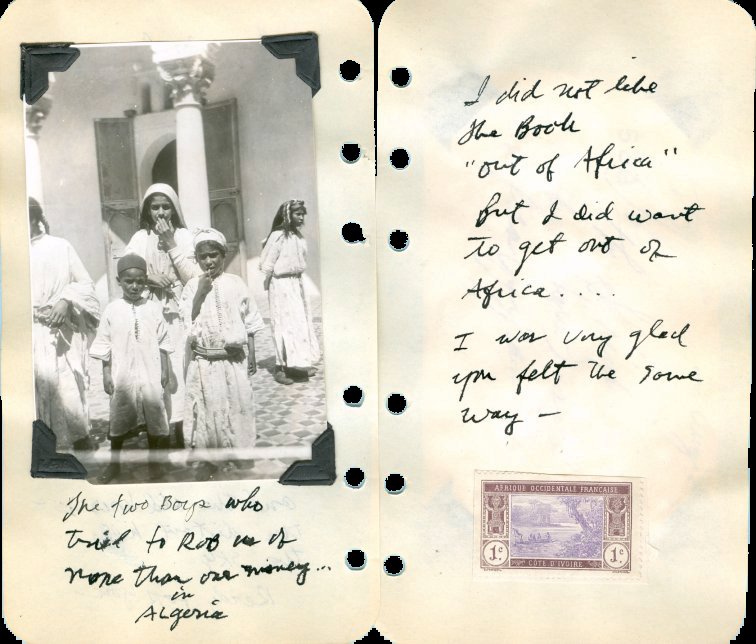 The two Boys who
tried to Rob us of
more than our money...
in
ALgeria
I did not like
the Book
"out of Africa"
But I did want
to get out of
Africa....
I was very glad
you felt the same
way —
AFRIQUE OCCIDENTALE FRANÇAISE
1c 1c
CÔTE D'IVOIRE